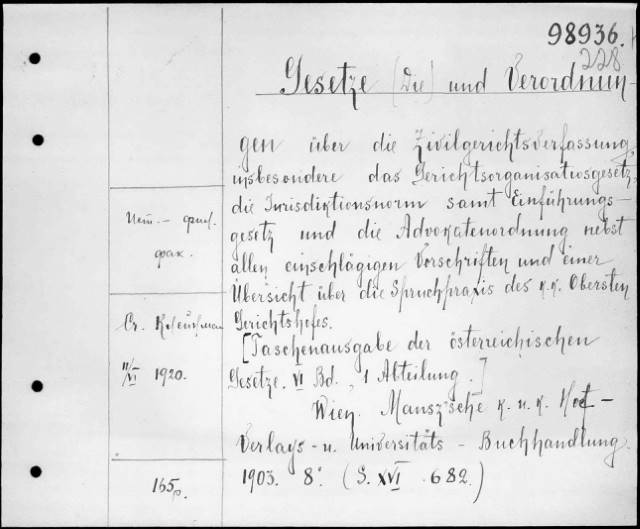 98936.
228
Gesetze (Die) und Verordnun-
gen über die Zivilgerichtsverfassung,
insbesondere das Gerichtsorganisatiosgesetz,
die Jurisdiktionsnorm samt Einführungs-
gesetz und die Advokatenordnung nebst
allen einschlägigen Vorschriften und einer
Übersicht über die Spruchpraxis des k.k. Obersten
Gerichtshofes.
[Taschenausgabe der österreichischen
Gesetze. VI Bd., 1 Abteilung.]
Wien. Mansz'sche k. u. k. Hof-
Verlags- u. Universitäts - Buchhandlung.
1903. 8°. (S. XVI + 682.)
фак.
Ст.
11/VI 1920.
165 р.